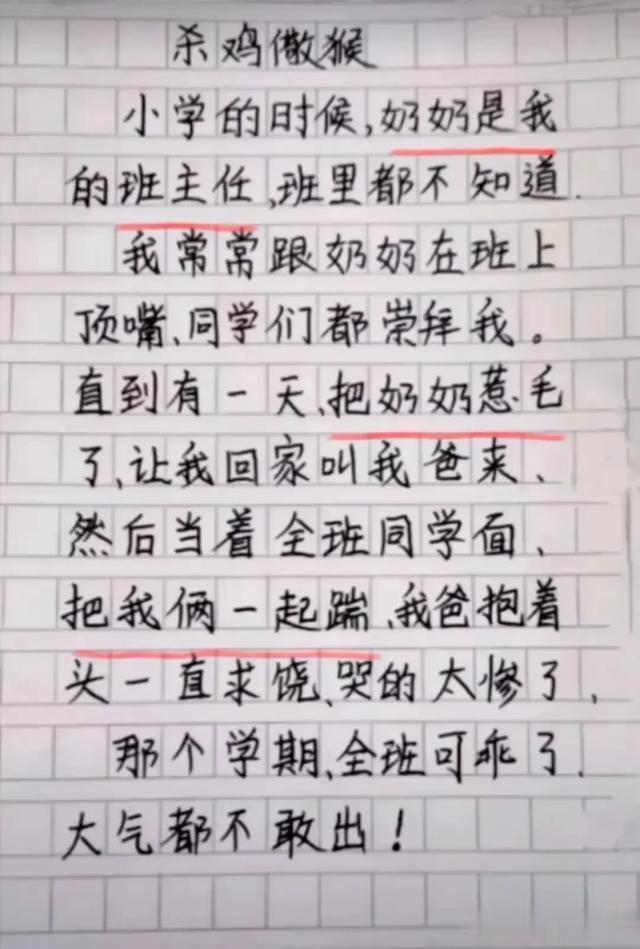 杀鸡儆猴
小学的时候,奶奶是我
的班主任,班里都不知道.
我常常跟奶奶在班上
顶嘴、同学们都崇拜我。
直到有一天、把奶奶惹毛
了、让我回家叫我爸来、
然后当着全班同学面、
把我俩一起踹、我爸抱着
头一直求饶、哭的太惨了,
那个学期、全班可乖了.
大气都不敢出!